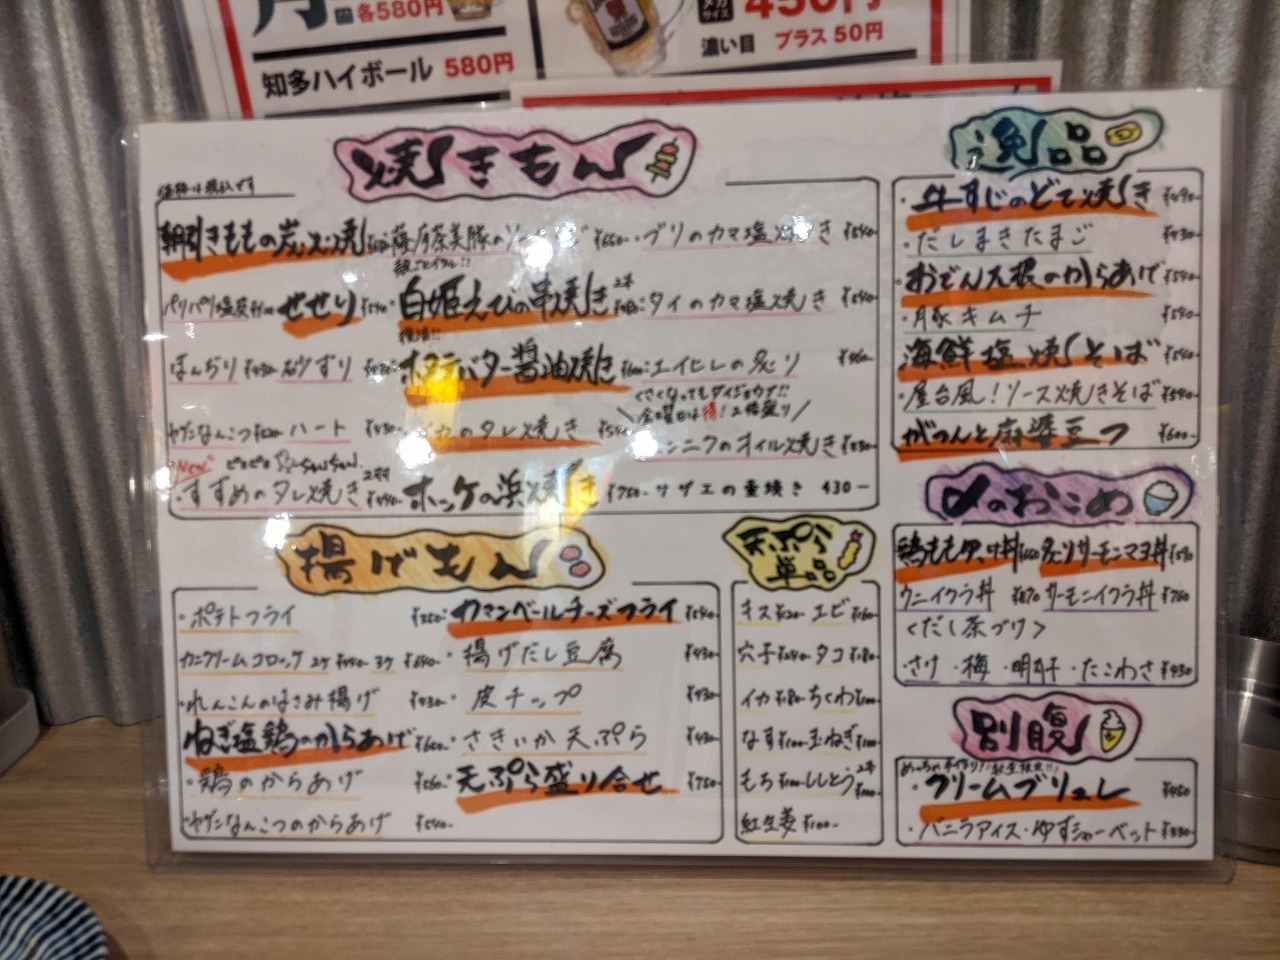 各580円
知多ハイボール 580円
450円
濃い目 プラス50円
焼きもん
価格は税込です
朝引きももの炭火焼
ブリのカマ塩焼き ¥540-
パリパリ塩皮
せせり ¥540-
白姫えびの串焼き 2本
タイのカマ塩焼き ¥540-
ぼんぢり ¥430-
砂ずり ¥430-
ホタテバター醤油焼き
エイヒレの炙り ¥460-
くさくなってもダイジョウブ!!
金曜日は得!2倍盛り
ヤゲンなんこつ
ハート ¥430-
イカのタレ焼き
ニンニクのオイル焼き ¥530-
New
すずめのタレ焼き
ホッケの浜焼き ¥750-
サザエの壷焼き 430-
逸品
牛すじのどて焼き ¥490-
・だしまきたまご ¥430-
おでん大根のからあげ ¥540-
・豚キムチ ¥540-
海鮮塩焼そば ¥540-
・屋台風!ソース焼きそば ¥540-
がつんと麻婆豆つ ¥600-
〆のおこめ
炙りサーモンマヨ丼 ¥590
ウニイクラ丼 ¥870
サーモンイクラ丼 ¥760
<だし茶づけ>
・さけ・梅・明太・たこわさ ¥430
別腹
・クリームブリュレ ¥450
・バニラアイス・ゆずシャーベット ¥330
揚げもん
・ポテトフライ ¥350-
カマンベールチーズフライ ¥540-
カニクリームコロッケ 2ケ ¥440- 3ケ ¥640-
・揚げだし豆腐 ¥430-
・れんこんのはさみ揚げ ¥430-
・皮チップ ¥430-
ねぎ塩鶏のからあげ ¥660-
・さきいか天ぷら ¥430-
・鶏のからあげ ¥560-
天ぷら盛り合せ ¥750-
ヤゲンなんこつのからあげ ¥540-
天ぷら
単品
キス ¥120- エビ ¥160-
穴子 ¥240- タコ ¥180-
イカ ¥180- ちくわ ¥100-
なす ¥100- 玉ねぎ ¥100-
もち ¥100- ししとう 2本 ¥100-
紅生姜 ¥100-